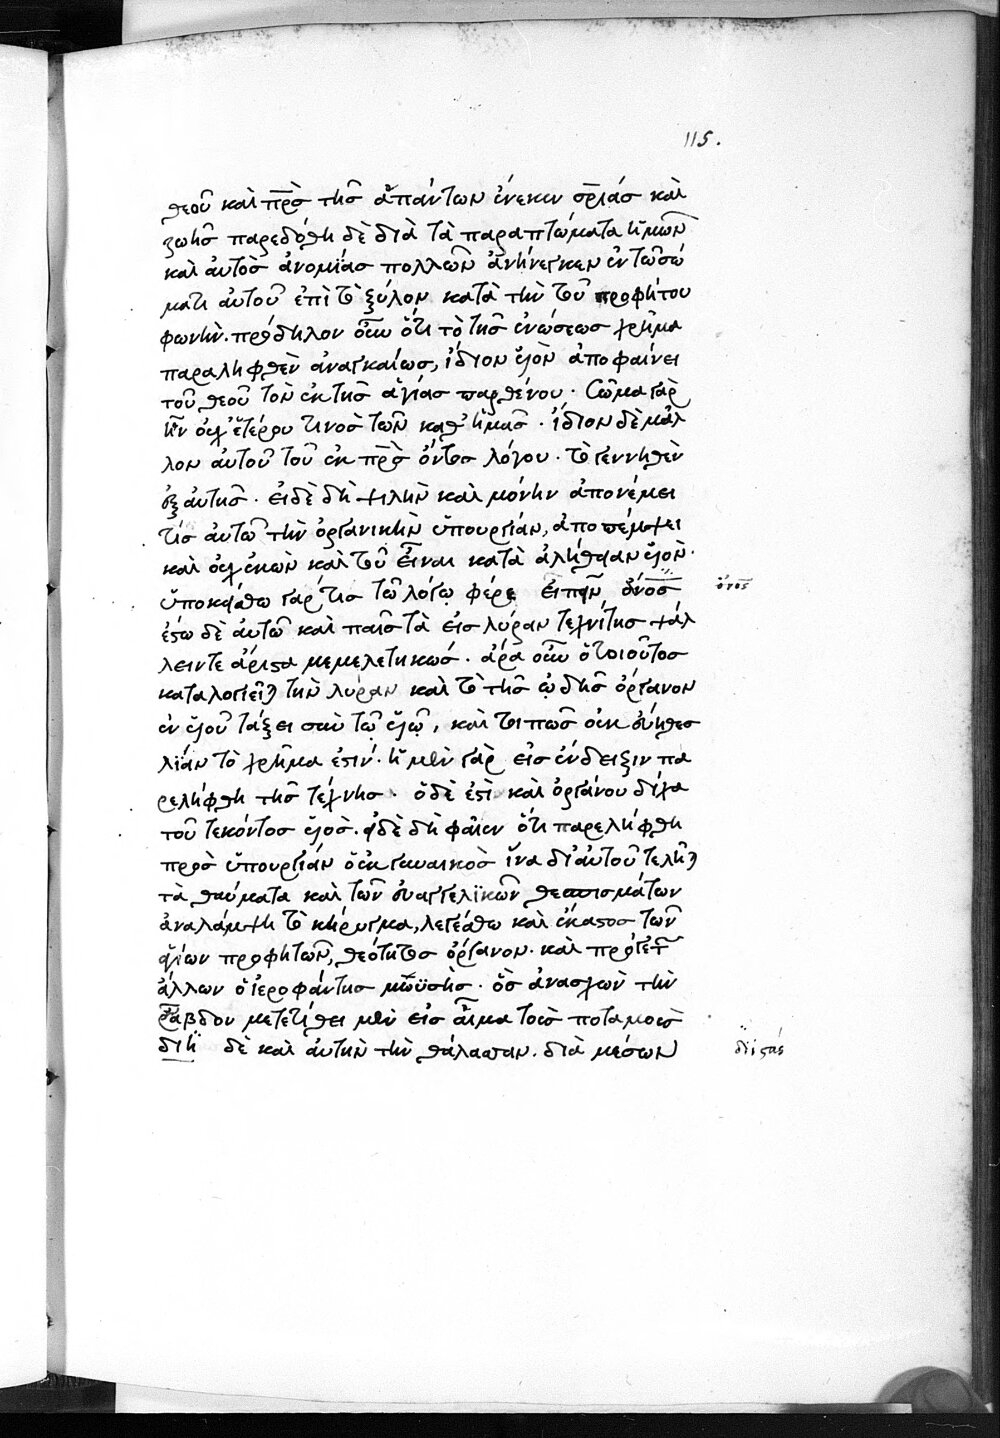 115.
θεοῦ καὶ πρὸς τῆς ἁπάντων ἕνεκεν σρίας καὶ
ζωῆς παρεδόθη δὲ διὰ τὰ παραπτώματα ἡμῶν
καὶ αὐτὸς ἀνομίας πολλῶν ἀνήνεγκεν ἐν τῷ σώ
ματι αὐτοῦ ἐπὶ τὸ ξύλον κατὰ τὴν τοῦ προφήτου
φωνήν. πρόδηλον οὖν ὅτι τὸ τῆς ἑνώσεως χρῆμα
παραληφθὲν ἀναγκαίως, ἴδιον υἱὸν ἀποφαίνει
τοῦ θεοῦ τὸν ἐκ τῆς ἁγίας παρθένου. Σῶμα γὰρ
ἦν οὐχ ἑτέρου τινὸς τῶν καθ' ἡμᾶς. ἴδιον δὲ μᾶλ
λον αὐτοῦ τοῦ ἐκ πρὸς ὄντος λόγου. τὸ γεννηθὲν
ἐξ αὐτῆς. εἰ δὲ δὴ ψιλὴν καὶ μόνην ἀπονέμει
τις αὐτῷ τὴν ὀργανικὴν ὑπουργίαν, ἀποπέμψει
καὶ οὐχ ἑκὼν καὶ τοῦ εἶναι κατὰ ἀλήθειαν υἱὸν.
ὑποκείσθω γάρ τις τῷ λόγῳ φέρε εἰπεῖν ὄνος
ὄνος
ἔστω δὲ αὐτῷ καὶ παῖς τὰ εἰς λύραν τεχνίτης ψάλ
λειν τε ἄριστα μεμελετηκώς. ἆρα οὖν ὁ τοιοῦτος
καταλογιεῖται τὴν λύραν καὶ τὸ τῆς ᾠδῆς ὄργανον
ἐν υἱοῦ τάξει σὺν τῷ υἱῷ, καὶ τί πως οὐκ εὔηθες
λίαν τὸ χρῆμα ἐστίν. ἡ μὲν γὰρ εἰς ἔνδειξιν πα
ρελήφθη τῆς τέχνης. ὁ δὲ ἐστὶ καὶ ὀργάνου δίχα
τοῦ τεκόντος υἱὸς. εἰ δὲ δὴ φαῖεν ὅτι παρελήφθη
πρὸς ὑπουργίαν ὁ ἐκ γυναικὸς ἵνα δι' αὐτοῦ τελῆται
τὰ θαύματα καὶ τῶν εὐαγγελικῶν θεσπισμάτων
ἀναλάμψη τὸ κήρυγμα, λεγέσθω καὶ ἕκαστος τῶν
ἁγίων προφητῶν, θεότητος ὄργανον. καὶ πρό γε τῶν
ἄλλων ὁ ἱεροφάντης μωϋσῆς. ὃς ἀνασχὼν τὴν
ῥάβδον μετετίθει μὲν εἰς αἷμα τοὺς ποταμοὺς
διῄ δὲ καὶ αὐτὴν τὴν θάλασσαν. διὰ μέσων
διϊστάς